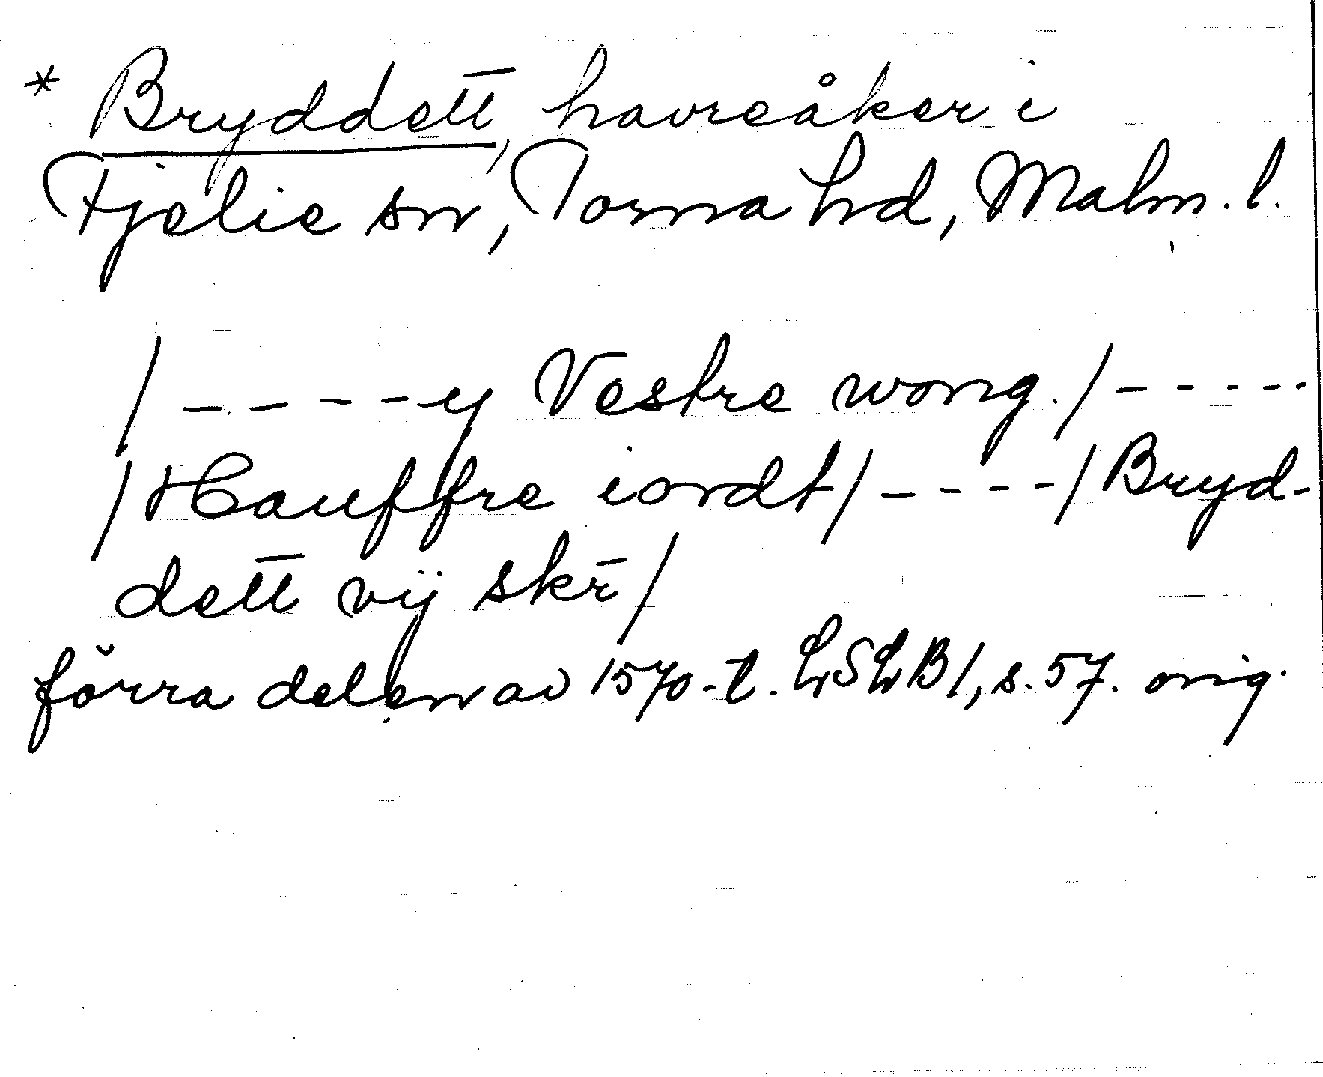 * Bryddett, havreåker i
Fjelie sn, Torna hd, Malm. l.
/ - - - - y Vestre wong. / - - - - -
/ Hauffre iordt / - - - - / Bryd-
dett vij skr̄ /
förra delen av 1570-t. LSLB 1, s. 57. orig.